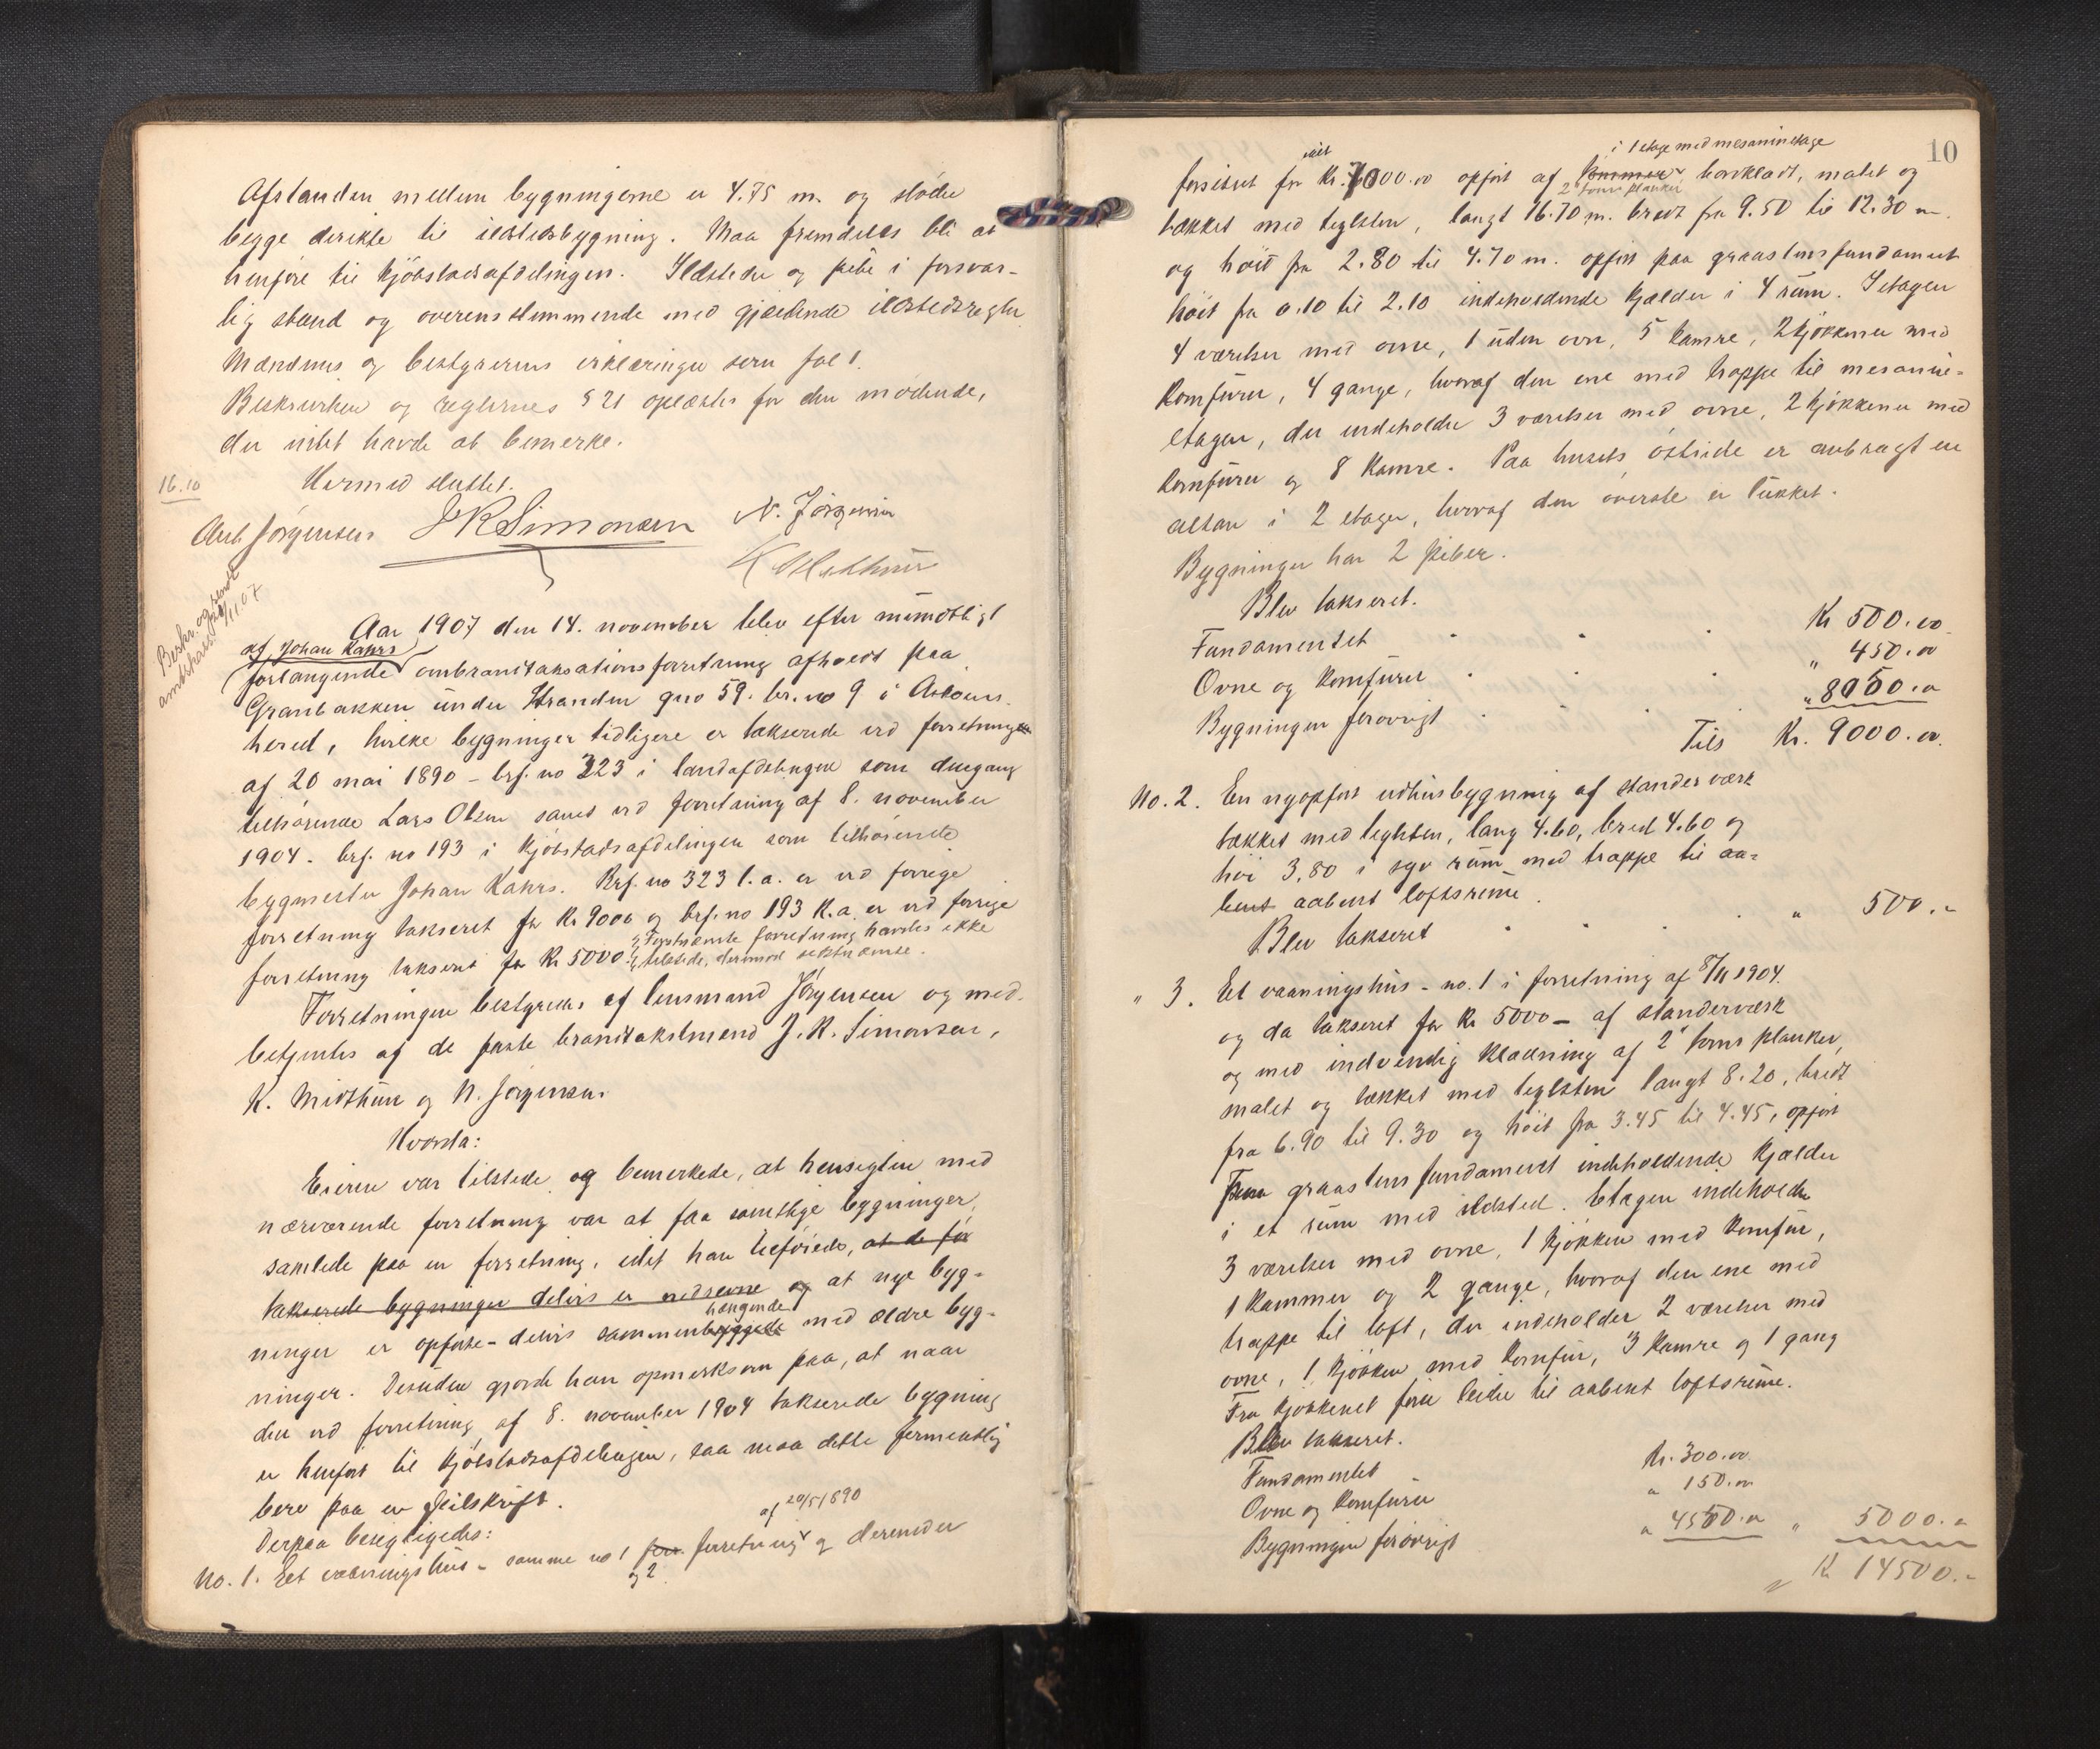 Afstanden mellem bygningerne er 4.75 m. og støder
begge direkte til ildstedsbygning. Maa fremdeles bli at
henføre til kjøbstadsafdelingen. Ildsteder og pibe i forsvar-
lig stand og overensstemmende med gjældende ildstedsregler
Mændenes og bestyrerens erklæringer som fol 1.
Beskrivelsen og reglernes § 21 oplæstes for den mødende,
der intet havde at bemerke.
16.10
Hermed sluttet.
Ant Jørgensen J R Simonsen N. Jørgensen
K Midthun
Beskr. og sendt
amtskass. 20/11 07
Aar 1907 den 14. november blev efter mündtligt
af Johan Kahrs
forlangende ombrandtaksationsforretning afholdt paa
Granbakken under Stranden gno 59. br. no 9 i Askøens
hered, hvilke bygninger tidligere er takserede ved forretninger
af 20 mai 1890 - brf. no 323 i landafdelingen som dengang
tilhørende Lars Olsen samt ved forretning af 8. november
1904 - brf. no 193 i kjøbstadsafdelingen som tilhørende
bygmester Johan Kahrs. Brf. no 323 l. a. er ved forrige
forretning takseret for Kr 9000 og brf. no 193 K. a. er ved forrige
forretning takseret for Kr 5000. Førstnævnte forretning havdes ikke
tilstede, derimod sidstnævnte.
Forretningen bestyredes af lensmand Jørgensen og med-
betjentes af de faste brandtakstmænd J. R. Simonsen,
K. Midthun og N. Jørgensen.
Hvorda:
Eieren var tilstede og bemerkede, at hensigten med
nærværende forretning var at faa samtlige bygninger
samlede paa en forretning, idet han tilføiede, at de før
takserede bygninger delvis er nedrevne og at nye byg-
hængende
ninger er opførte - delvis sammenbyggede med ældre byg-
ninger. Desuden gjorde han opmerksom paa, at naar
den ved forretning af 8. november 1904 takserede bygning
er henført til kjøbstadsafdelingen, saa maa dette formentlig
bero paa en feilskrift.
Derpaa besigtigedes:
af 20/5 1890
No. 1. Eet vaaningshus - samme no 1 for. forretning og derunder
og 2
10
i 1 etage med mesaninetage
idet
forsikret for Kr. 7000.00 opført af tømmer bordklædt, malet og
2" toms planker
tækket med teglsten, langt 16.70 m. bredt fra 9.50 til 12.30 m.
og høit fra 2.80 til 4.70 m. opført paa graastensfundament
høit fra 0.10 til 2.10 indeholdende kjælder i 4 rum. I etagen
4 værelser med ovne, 1 uden ovn, 5 kamre, 2 kjøkkener med
komfurer, 4 gange, hvoraf den ene med trappe til mesanin-
etagen, der indeholder 3 værelser med ovne, 2 kjøkkener med
komfurer og 8 kamre. Paa husets østside er anbragt en
altan i 2 etager, hvoraf den øverste er lukket.
Bygningen har 2 piber.
Blev takseret.
Fundamentet Kr 500.00
Ovne og komfurer " 450.00
Bygningen forøvrigt " 8050.00
Tils Kr. 9000.00
No. 2. En nyopført udhusbygning af standerværk
tækket med teglsten, lang 4.60, bred 4.60 og
høi 3.80 i syv rum med trappe til aa-
bent aabent loftsrum.
Blev takseret " 500.-
" 3. Et vaaningshus - no. 1 i forretning af 8/11 1904.
og da takseret for Kr 5000 - af standerværk
og med indvendig klædning af 2" toms planker,
malet og tækket med teglsten langt 8.20, bredt
fra 6.90 til 9.30 og høit fra 3.45 til 4.45, opført
paa graastensfundament indeholdende kjælder
i et rum med ildsted. Etagen indeholder
3 værelser med ovne, 1 kjøkken med komfur,
1 kammer og 2 gange, hvoraf den ene med
trappe til loft, der indeholder 2 værelser med
ovne, 1 kjøkken med komfur, 3 kamre og 1 gang
Fra kjøkkenet fører leider til aabent loftsrum.
Blev takseret.
Fundamentet Kr. 300.00
Ovne og komfurer " 150.00
Bygningen forøvrigt " 4550.00 " 5000.00
Kr 14500.-